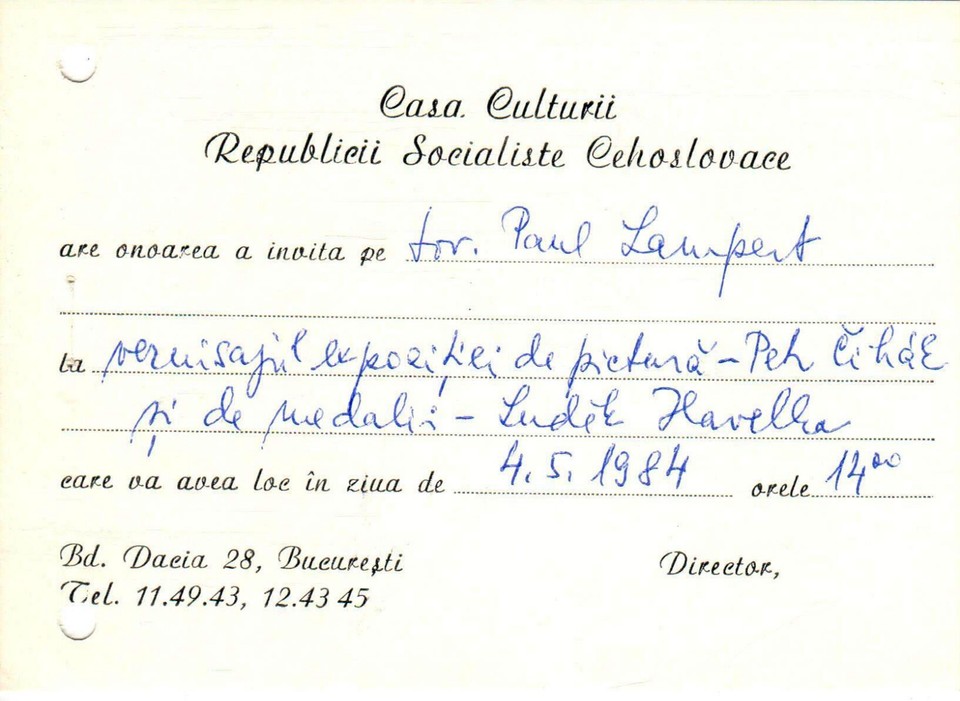 Casa Culturii
Republicii Socialiste Cehoslovace
are onoarea a invita pe tov. Paul Lampert
la vernisajul expoziției de pictură – Petr Čihák
și de medalii – Luděk Havelka
care va avea loc în ziua de 4.5.1984 orele 14⁰⁰
Bd. Dacia 28, București
Director,
Tel. 11.49.43, 12.43 45